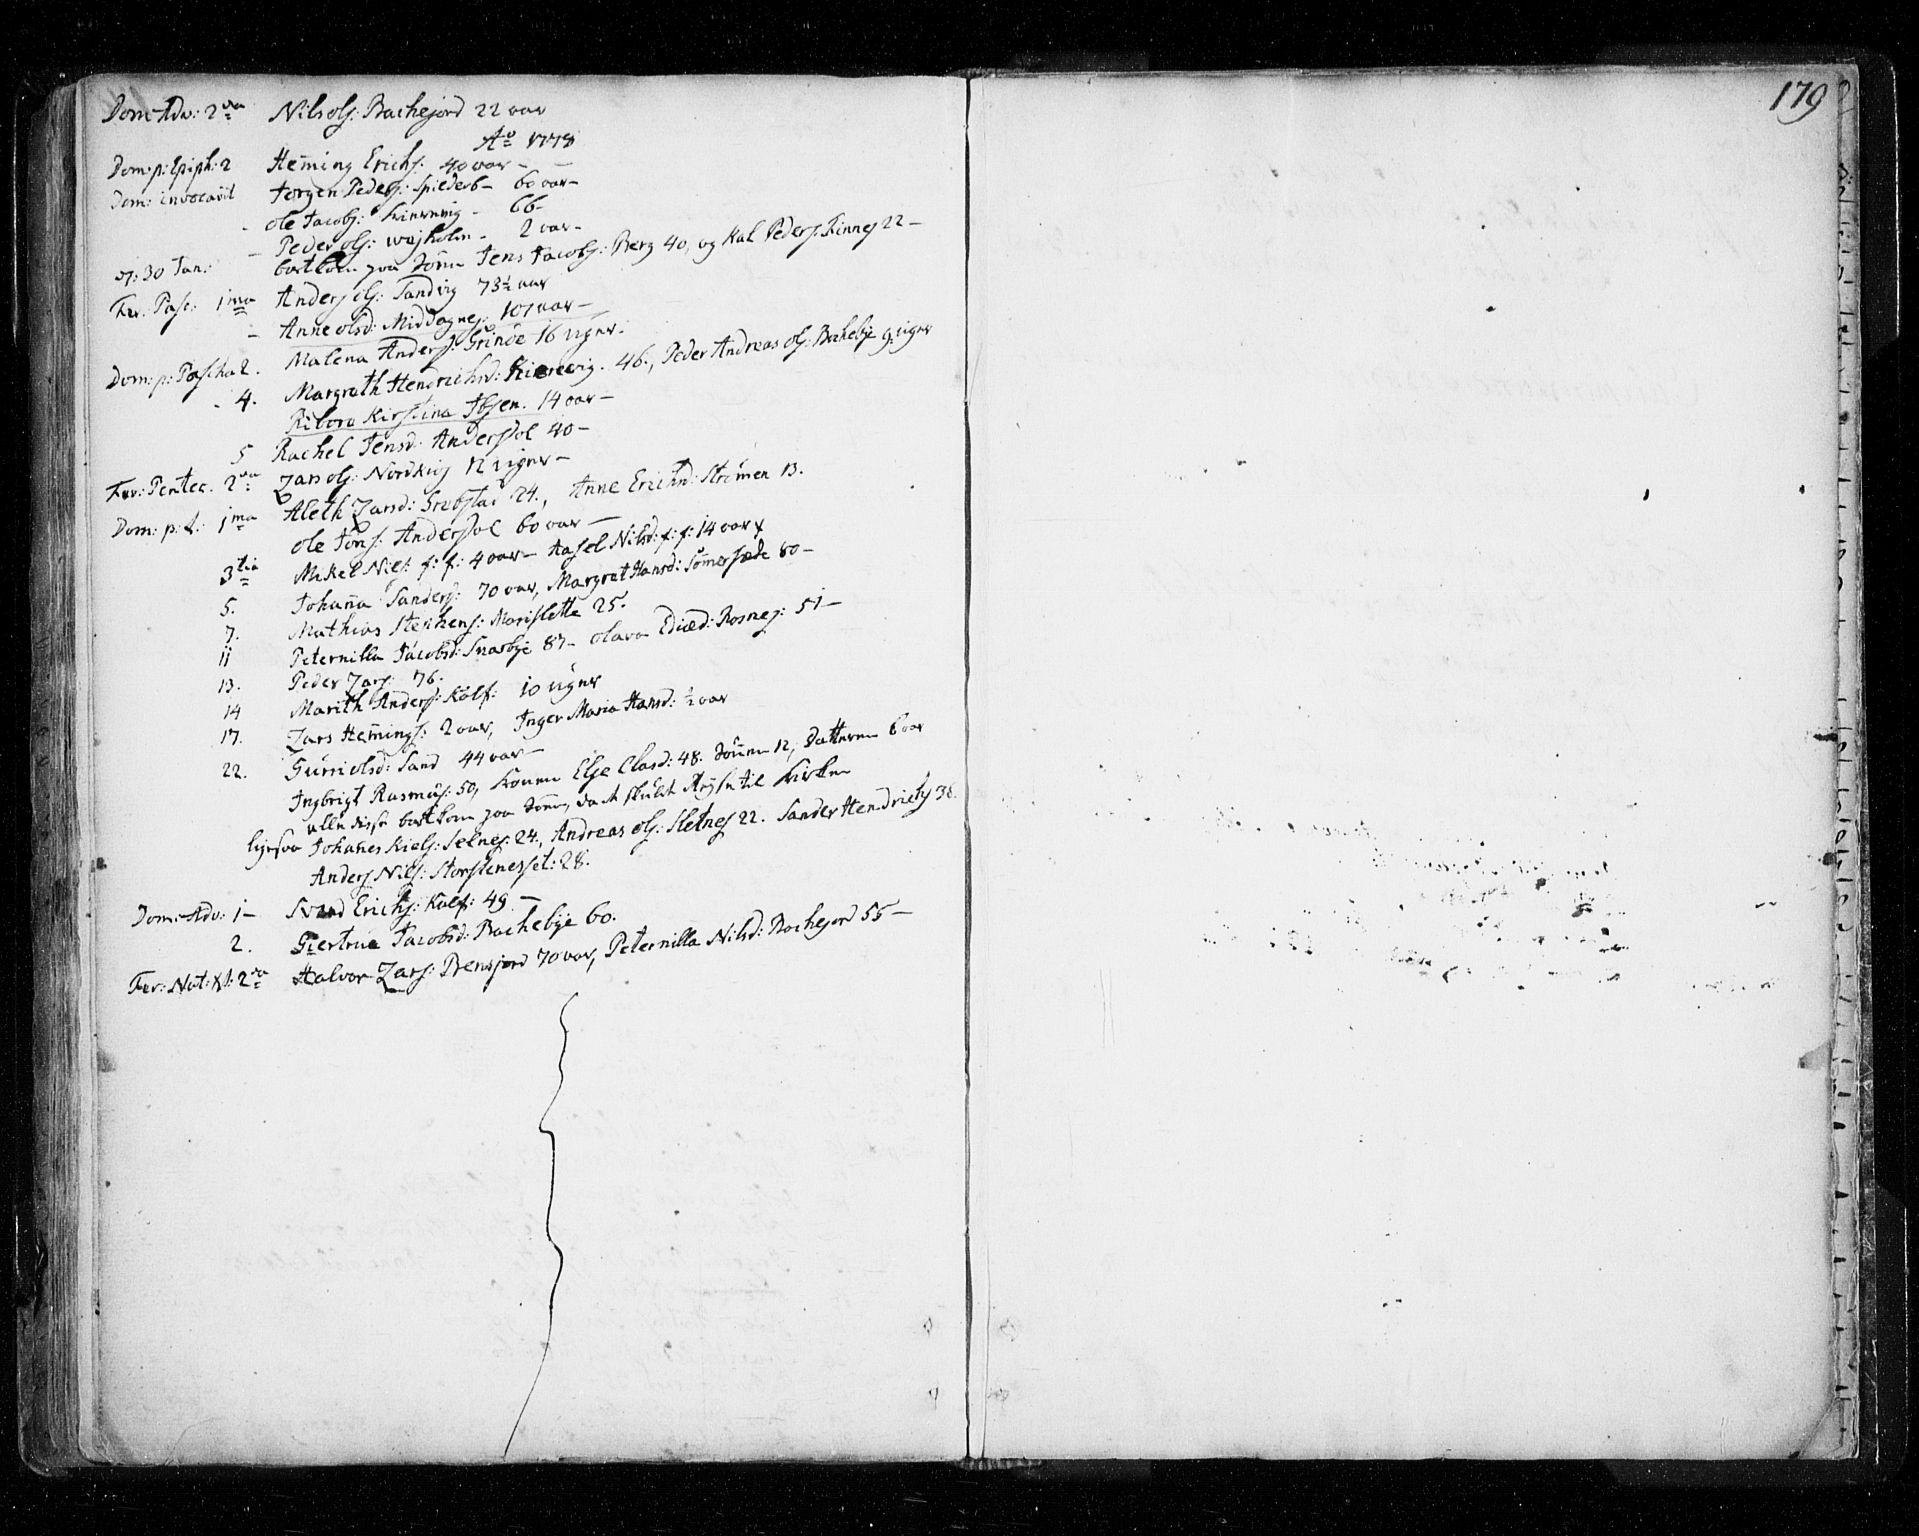 Dom: Adv: 2da Nils ols: Bachejord 22 aar
Ao 1778
Dom: p: Epiph: 2 Heming Erichs: 40 aar —
Dom: invocavit Jørgen Peders: 60 aar —
- Ole Jacobs: 66 —
- Peder ols: 2 aar —
d: 30 Jan: bortkom paa Søen Jens Jacobs: Berg 40, og Kal Peders: Finnes 22 —
Fer: Pasc: 1ma Anders ols: Sandvig 73½ aar
- Anne olsd: Middagnes: 107 aar —
Malena Anders: Grinøe 16 uger.
Dom: p: Pascha 2. Margreth Hendrichsd: 46., Peder Andreas ols: Bakebye 9 uger
- 4. Ribora Kirstina Ibsen. 14 aar —
5 Rachel Jensd: Andersdal 40 —
Fer: Pentec. 2da Lars ols: Nordkios 12 uger —
Dom: p: t: 1ma Aleth Larsd: Grebstad 24., Anne Erichsd: Strømen 13.
Ole Jons: Andersdal 60 aar —
3tia Mikel Niels: f: f: 4 aar — Aasel Nilsd: f: f: 14 aar
5. Johana Sanders: 70 aar, Margret Hansd: Somersæde 80 —
7. Mathias Stephens: Marislette 25.
11 Peternilla Jacobsd: Snarbye 87 — Olava Rosnes: 51 —
13. Peder Lars: 76.
14 Marith Anders: Kalf: 10 uger
17. Lars Hemings: 2 aar, Inger Maria Hansd: ½ aar
22. Gurri olsd: Sand 44 aar —
Ingbrigt Rasmus: 50, Konen Elje Clasd: 48. Sønen 12, Datteren 6 aar
alle disse bortkom paa Søen, da de skulde Reyse til Kirken
ligesaa Johanes Niels: Selnes: 24., Andreas ols: Sletnes 22. Sander Hendrichs 38.
Anders Nils: Storstenesset: 28.
Dom: Adv: 1 — Erichs: Kalf: 49. —
2. Giertrue Jacobsd: Bachebye 60.
Fer: Nat: X: 2da Halvor Lars: Brensjord 70 aar, Peternilla Nilsd: Bachejord 55 —
179